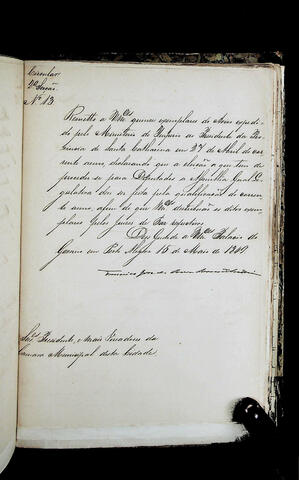 Circular
2ª Secção
Nº 13.
Remetto a Vmces quinze exemplares do Aviso expedi-
do pelo Ministerio do Imperio ao Presidente da Pro-
vincia de Santa Catharina em 27 de Abril do cor-
rente anno, declarando que a eleição a que tem de
proceder-se para Deputados a Assembléa Geral Le-
gislativa deve ser feita pela qualificação do corren-
te anno, afim de que Vmces distribuão os ditos exem-
plares pelos Juizes de Paz respectivos.
Deos Guarde a Vmces Palacio do
Governo em Porto Alegre 15 de Maio de 1849
Francisco José de
Snres Presidente, e mais Vereadores da
Camara Municipal desta Cidade.